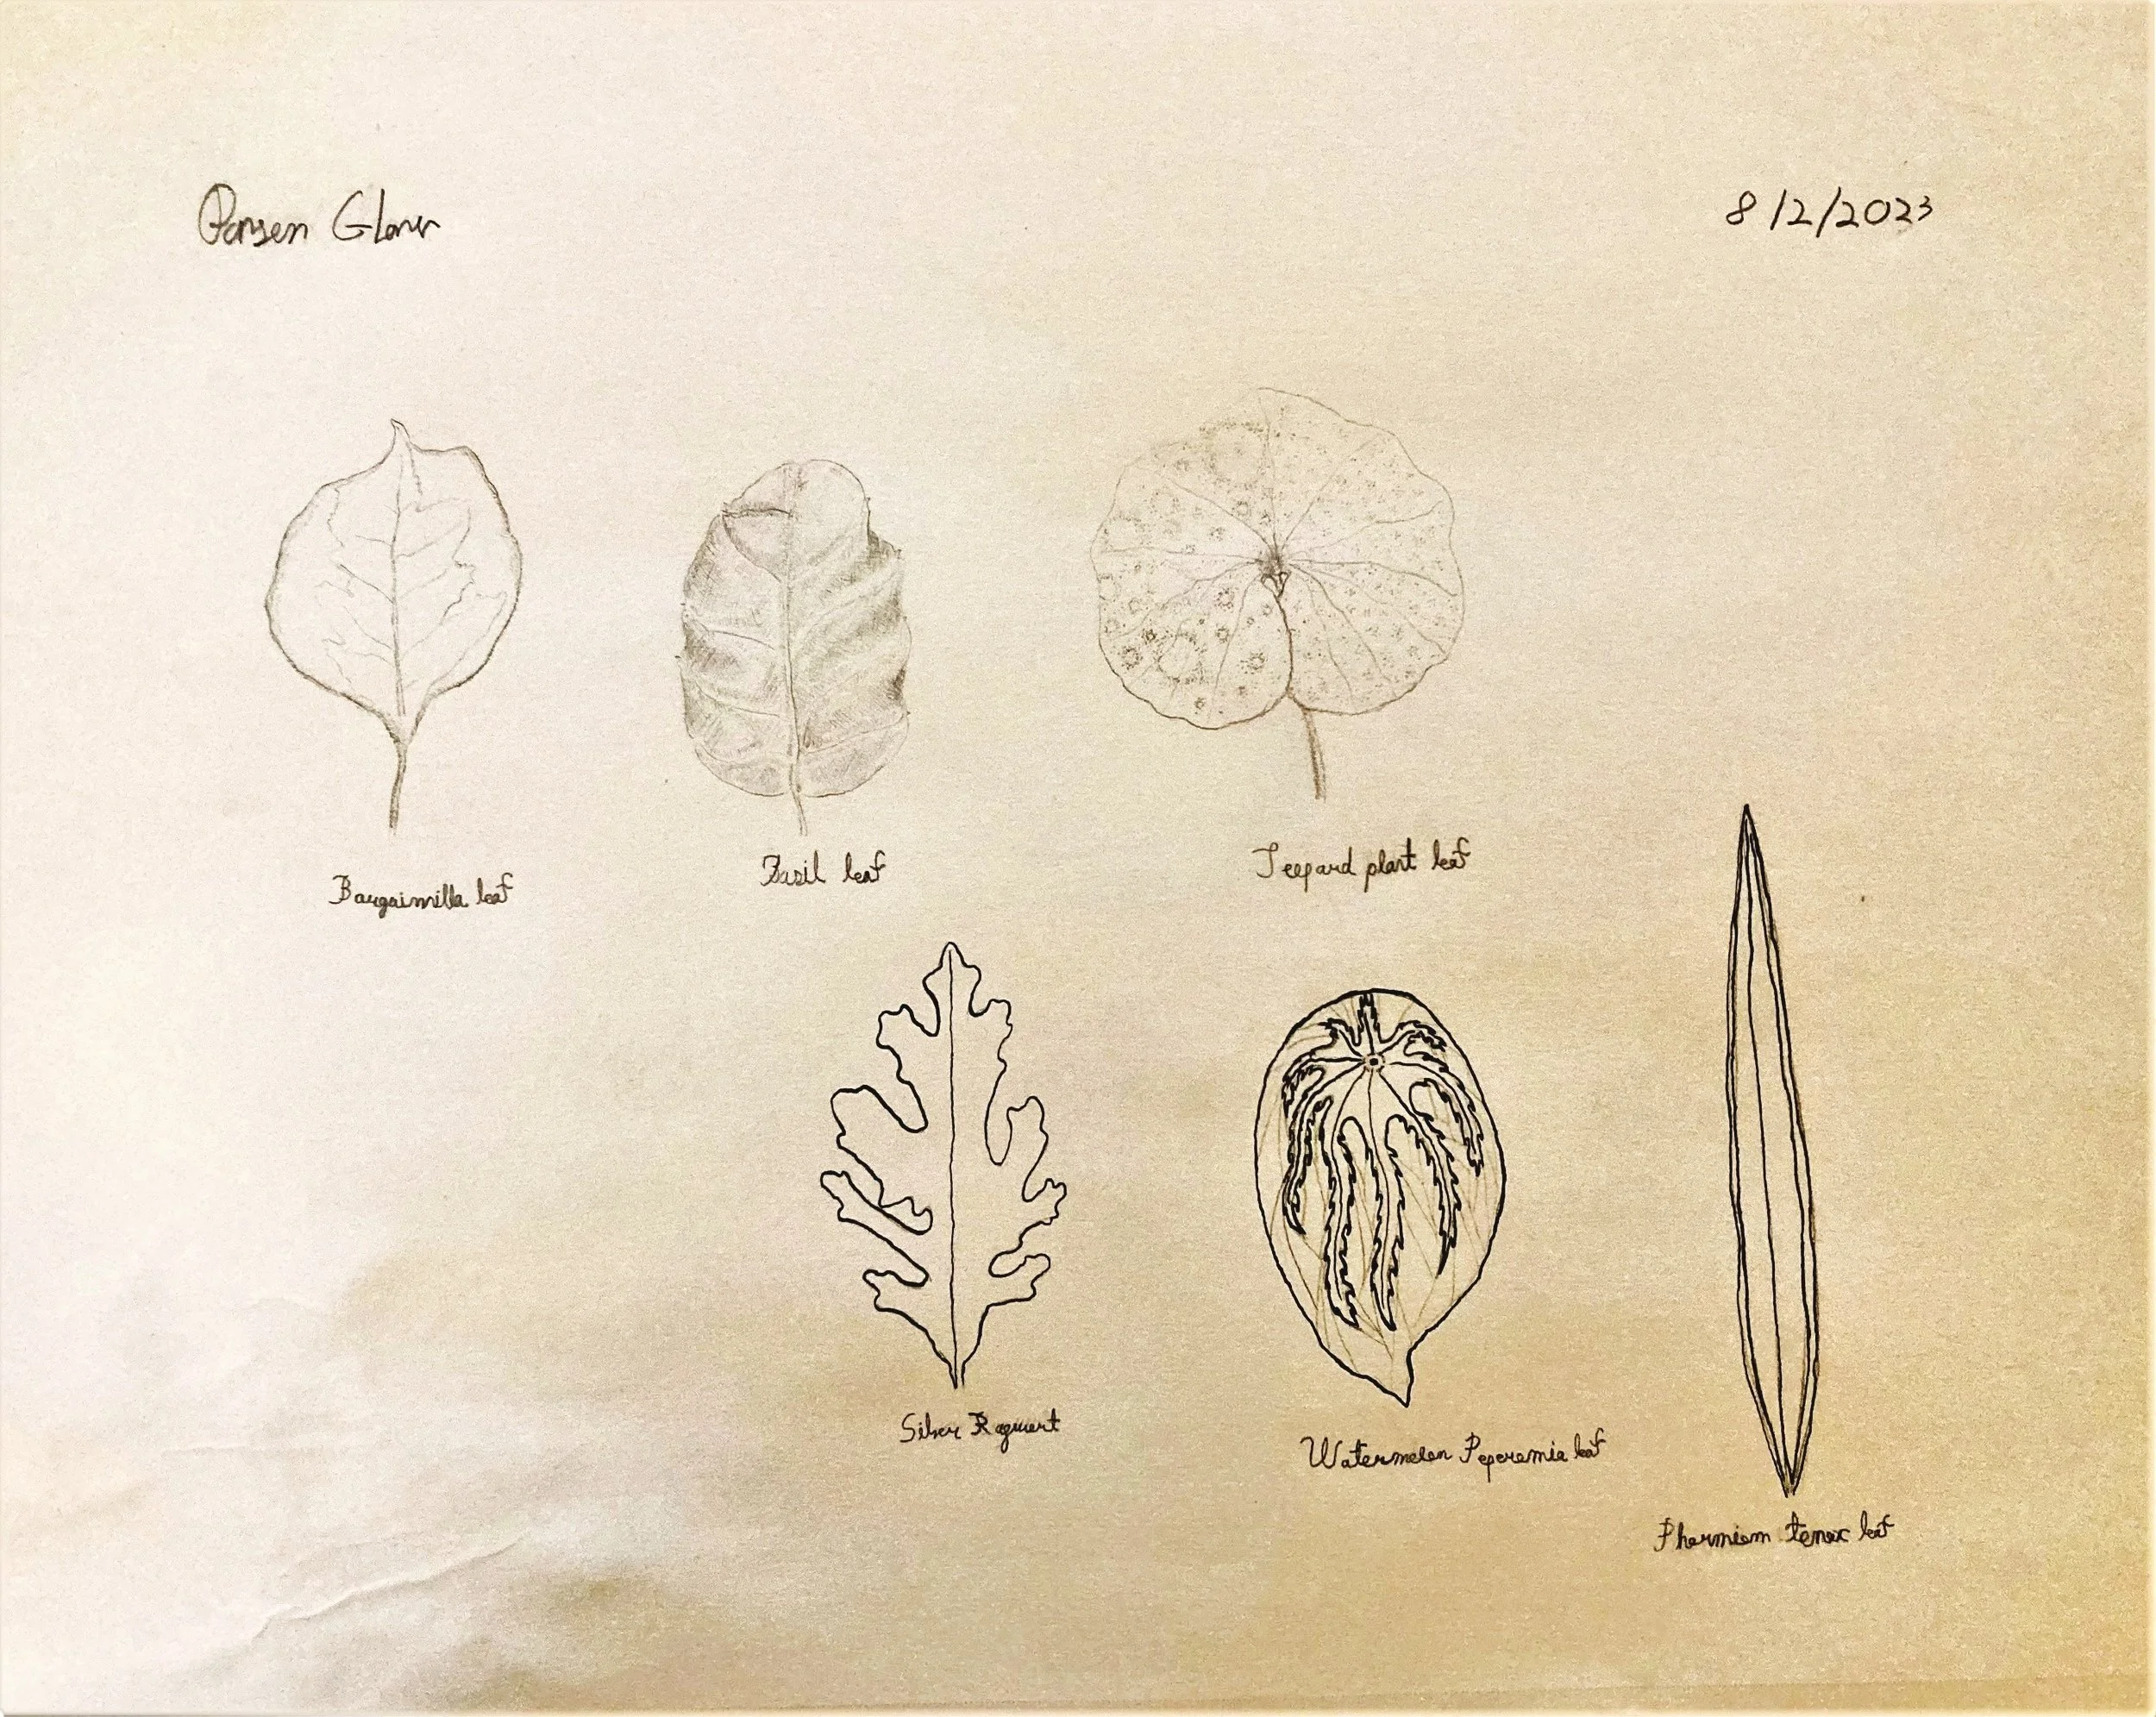 8/2/2023
Basil leaf
Leopard plant leaf
Silver Ragwort
Watermelon Peperomia leaf
Phormium tenax leaf